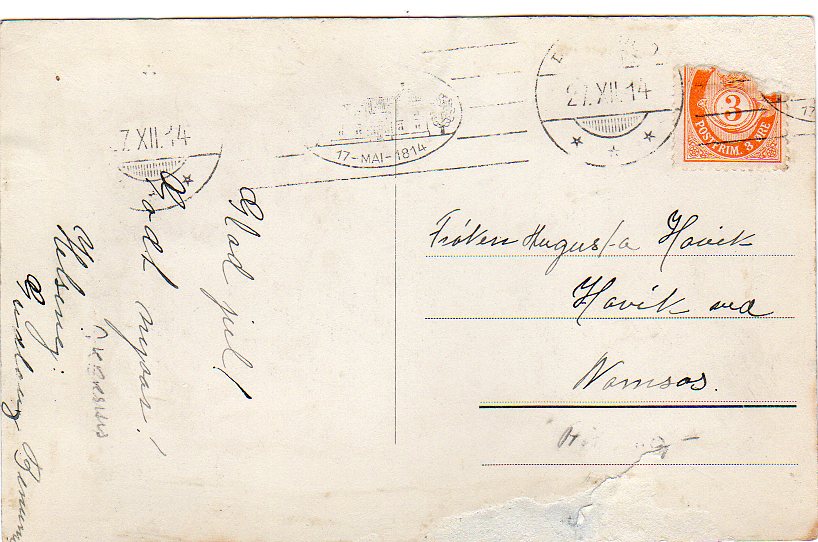 27.XII.14
7.XII.14
17-MAI-1814
3
POSTFRIM. 3 ØRE
17
Glad jul!
Godt nyaar!
Hilsing:
Frøken Augusta Havik
Havik ved
Namsos.